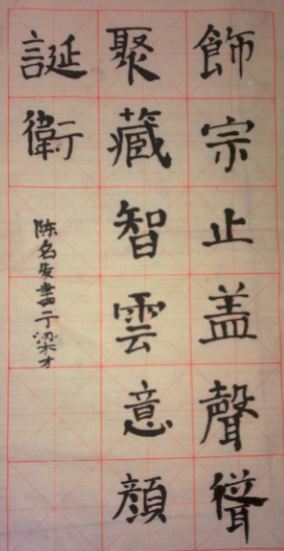 飾宗止盖聲聳
聚藏智雲意顏
誕衛
陈名发書于梁才